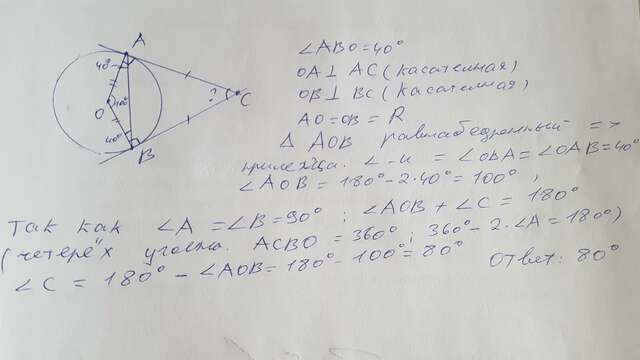 A
40°
100°
O
40°
B
?
C
∠ABO=40°
OA⊥AC (касательная)
OB⊥BC (касательная)
AO=OB=R
Δ AOB равнобедренный =>
прилежща. ∠-и = ∠OBA=∠OAB=40°
∠AOB = 180°-2·40°=100°,
Так как ∠A=∠B=90°; ∠AOB+∠C=180°
(четерёх уголн. ACBO=360°; 360°-2·∠A=180°)
∠C=180°-∠AOB=180°-100°=80° Ответ: 80°